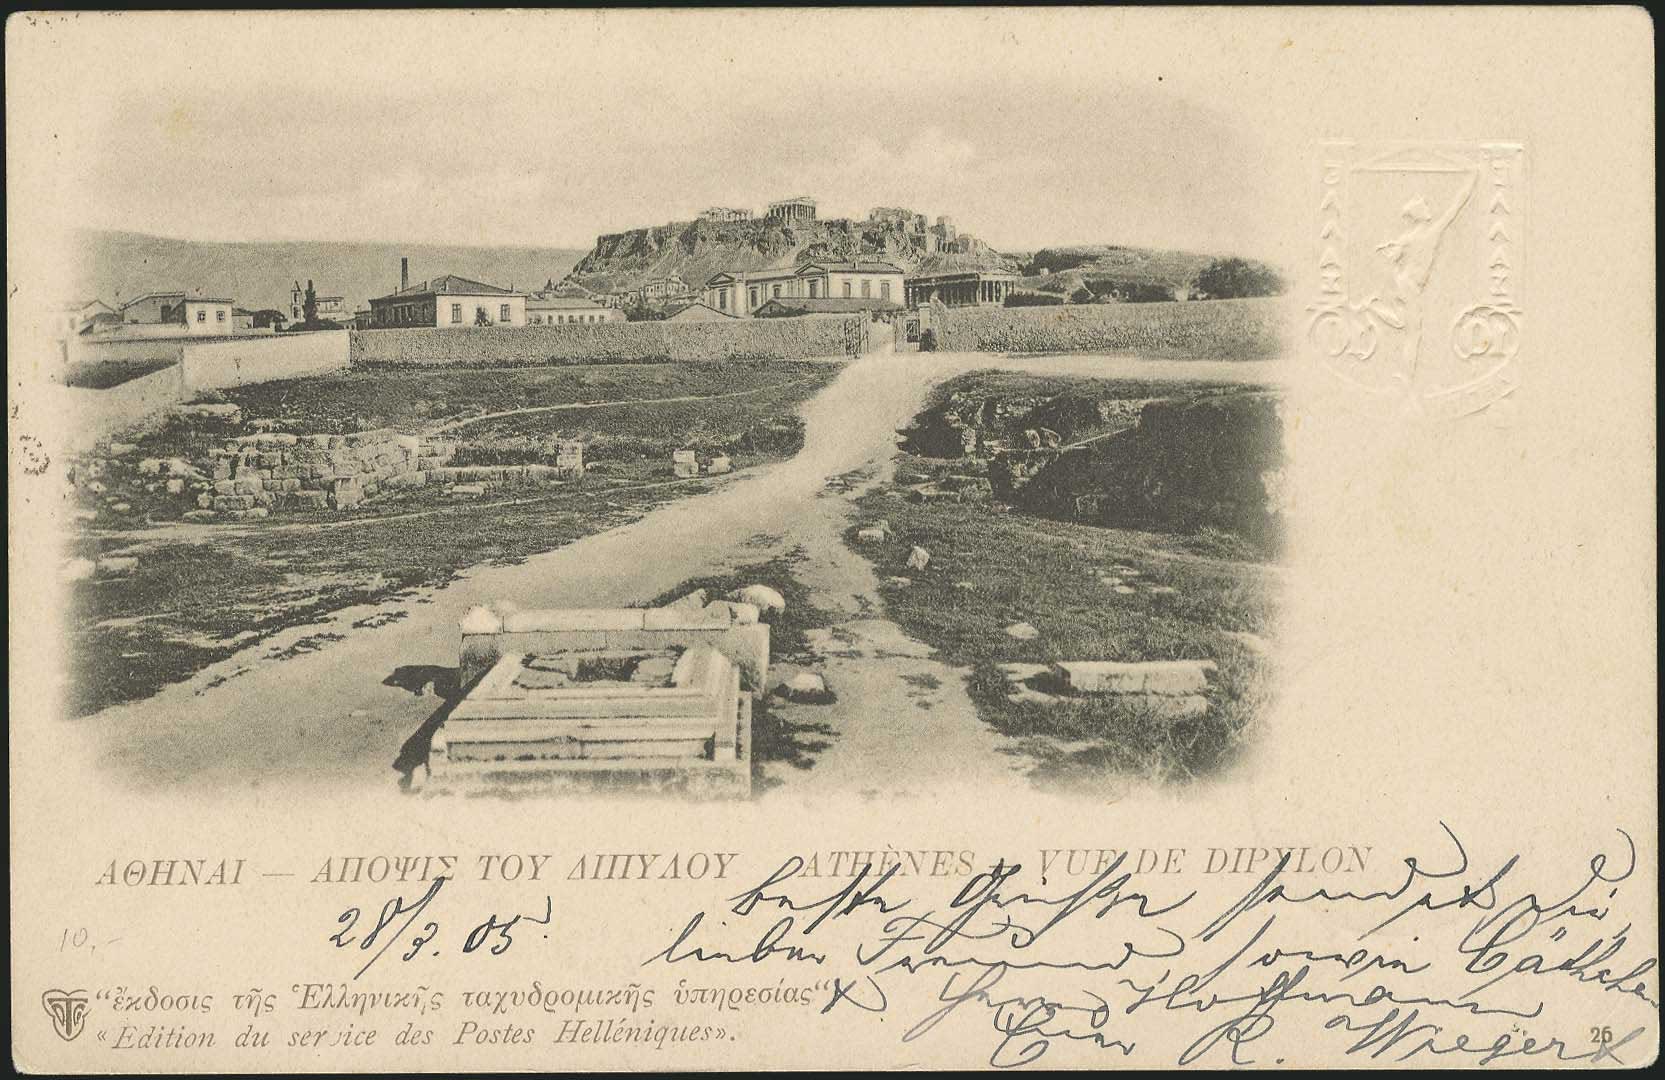 ΑΘΗΝΑΙ — ΑΠΟΨΙΣ ΤΟΥ ΔΙΠΥΛΟΥ ATHÈNES — VUE DE DIPYLON
28/3. 05.
beste Grüße sendet Dir,
lieber Freund, sowie Cäthchen
Hoffmann
R. Wiegert
"ἔκδοσις τῆς Ἑλληνικῆς ταχυδρομικῆς ὑπηρεσίας"
«Edition du service des Postes Helléniques».
26
10,-
ΕΛΛΑΣ ΕΛΛΑΣ